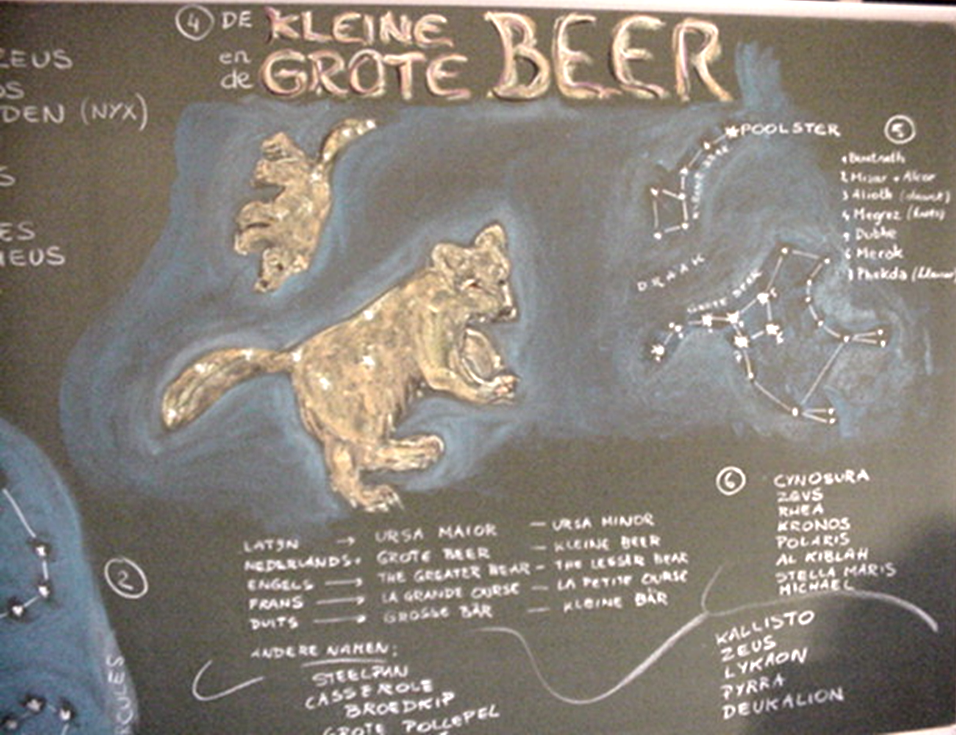 ④ DE KLEINE
en
de GROTE BEER
ZEUS
OS
DEN (NYX)
S
ES
HEUS
POOLSTER
⑤
2 Mizar + Alcor
3 Alioth
4 Megrez
5 Dubhe
6 Merok
Phekda
DRAAK
GROTE BEER
②
LATIJN → URSA MAIOR — URSA MINOR
NEDERLANDS → GROTE BEER — KLEINE BEER
ENGELS → THE GREATER BEAR — THE LESSER BEAR
FRANS → LA GRANDE OURSE — LA PETITE OURSE
DUITS → GROSSE BÄR — KLEINE BÄR
ANDERE NAMEN:
STEELPAN
CASSEROLE
BROEDKIP
GROTE POLLEPEL
⑥ CYNOSURA
ZEUS
RHEA
KRONOS
POLARIS
AL KIBLAH
STELLA MARIS
MICHAEL
KALLISTO
ZEUS
LYKAON
PYRRA
DEUKALION
RCULES